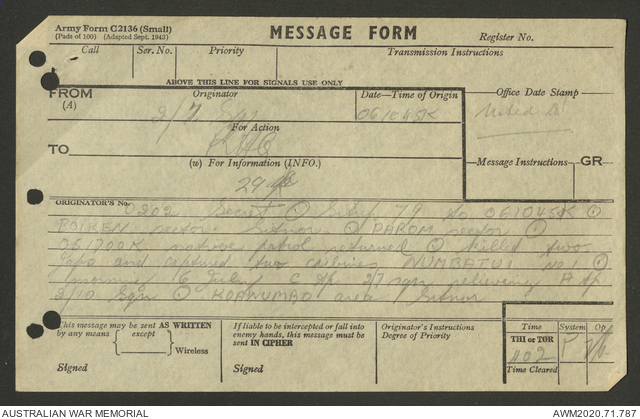 Army Form C2136 (Small)
(Pads of 100) (Adapted Sept. 1943)
MESSAGE FORM
Register No.
Call Ser. No. Priority Transmission Instructions
ABOVE THIS LINE FOR SIGNALS USE ONLY
FROM Originator Date—Time of Origin Office Date Stamp
(A) 2/7 Sqn 061045K Noted
For Action
TO RHQ
(W) For Information (INFO.) Message Instructions GR
29
ORIGINATOR'S No.
0202 Secret Sitrep 79 to 061045K
BOIKEN sector Sitnor PAROM sector
061700K natives patrol returned killed two
Japs and captured two carbines NUMBATUI No. 1
tomorrow 6 July C Tp 2/7 Sqn relieving B Tp
2/10 Sqn area Sitnor
This message may be sent AS WRITTEN
by any means except
Wireless
Signed
If liable to be intercepted or fall into
enemy hands, this message must be
sent IN CIPHER
Signed
Originator's Instructions
Degree of Priority
Time System Op.
THI or TOR
1102
Time Cleared
AUSTRALIAN WAR MEMORIAL AWM2020.71.787